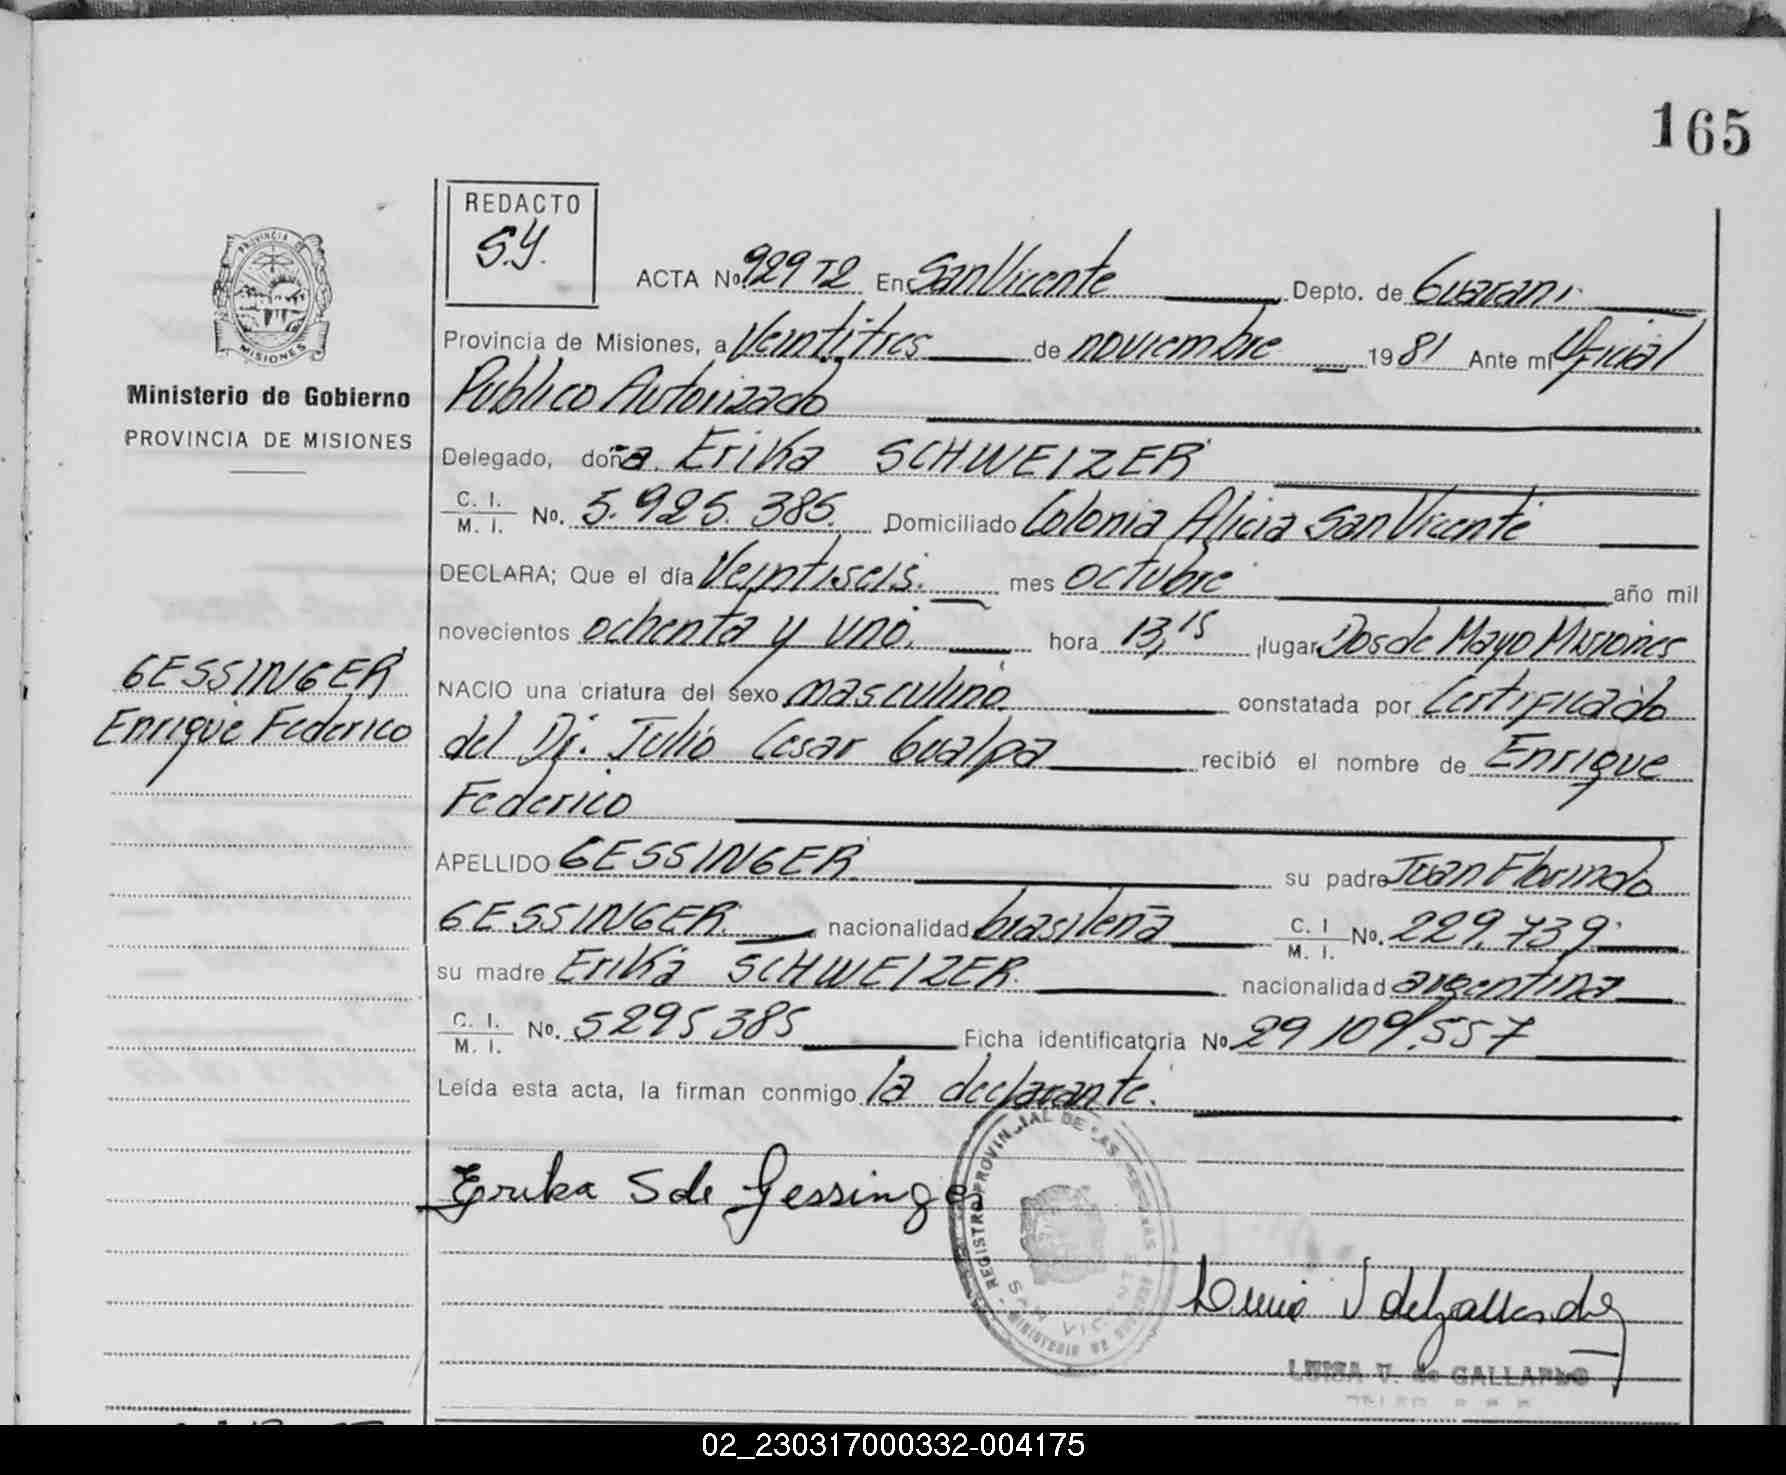 165
REDACTO
S.Y.
ACTA No. 929 T2 En San Vicente Depto. de Guarani
Provincia de Misiones, a Veintitres de noviembre 1981 Ante mi Oficial
Publico Autorizado
Delegado, doña Erika SCHWEIZER
C. I.
M. I. No. 5.925.385. Domiciliado Colonia Alicia San Vicente
DECLARA; Que el día Veintiseis. mes octubre año mil
novecientos ochenta y uno. hora 13,15 lugar Dos de Mayo Misiones
NACIO una criatura del sexo masculino constatada por Certificado
del Dr. Julio Cesar Gualpa recibió el nombre de Enrique
Federico
APELLIDO GESSINGER su padre Juan Florindo
GESSINGER. nacionalidad brasileña C. I
M. I. No. 229.739
su madre Erika SCHWEIZER. nacionalidad argentina
C. I.
M. I. No. 5295385 Ficha identificatoria No 29 109.557
Leída esta acta, la firman conmigo la declarante.
Erika S de Gessinger
LUISA V. de GALLARDO
PROVINCIA DE
MISIONES
Ministerio de Gobierno
PROVINCIA DE MISIONES
GESSINGER
Enrique Federico
REGISTRO PROVINCIAL DE LAS PERSONAS
SAN VICENTE
MINISTERIO DE GOBIERNO
02_230317000332-004175